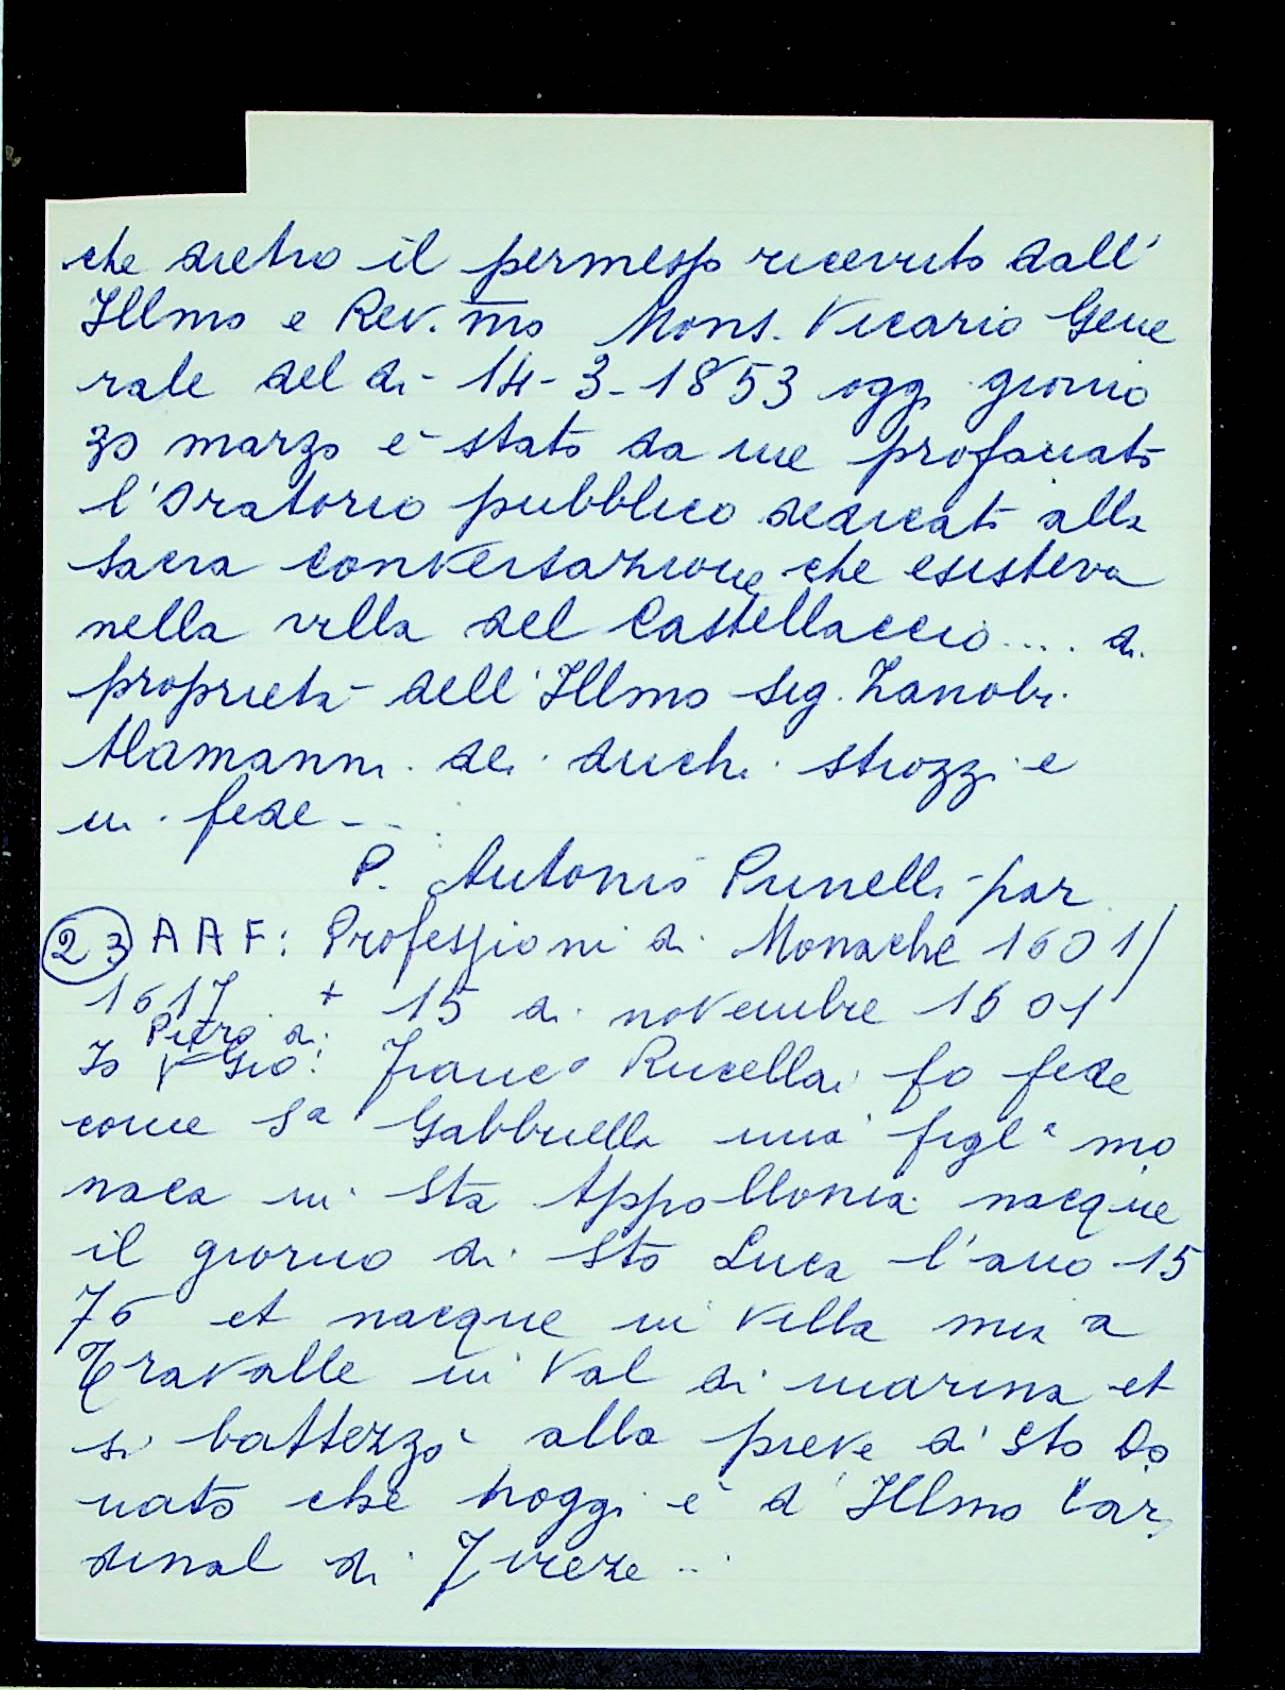 che dietro il permesso ricevuto dall'
Illmo e Rev.mo Mons. Vicario Gene
rale del di - 14-3-1853 oggi giorno
30 marzo è stato da me profanato
l'oratorio pubblico dedicato alla
sacra conversazione che esisteva
nella villa del Castellaccio.... di
proprietà dell'Illmo Sig. Zanobi
Alamanni dei duchi strozzi e
in fede --
P. Antonio Punelli - par
23 AAF: Professioni di Monache 1601/
1617 + 15 di novembre 1601
Piero di
Io Gio: Franc° Rucellai fo fede
come Sa Gabbriella mia figla mo
naca in Sta Appollonia nacque
il giorno di Sto Luca l'ano 15
76 et nacque in villa mia a
Travalle in Val di marina et
si battezzò alla pieve di Sto Do
nato che hoggi è d' Illmo Car
dinal di Fireze ..